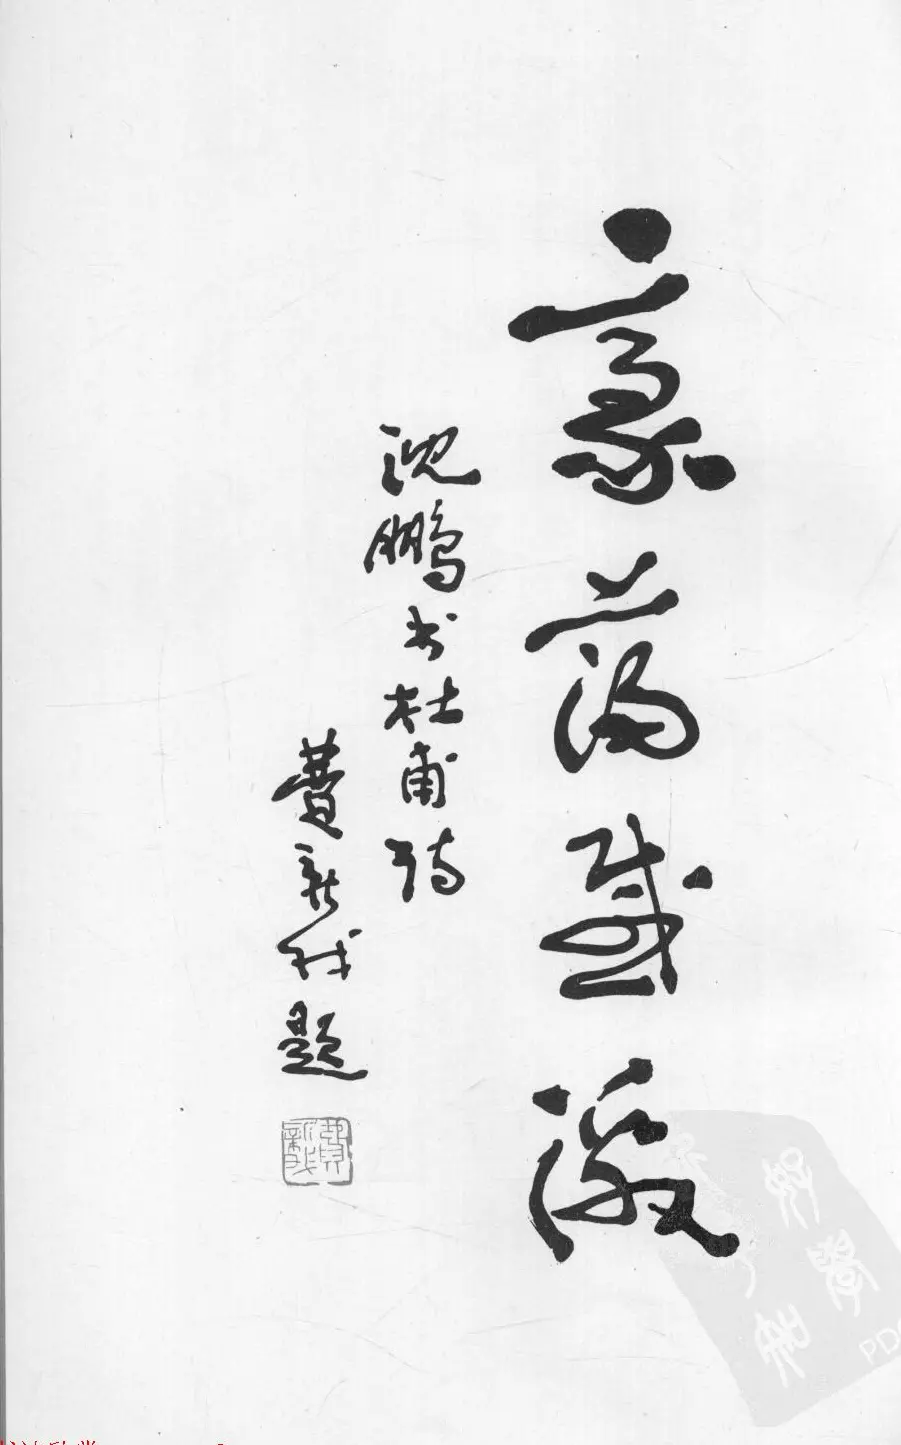 豪荡感激
沈鹏书杜甫诗
费新我题
費新我